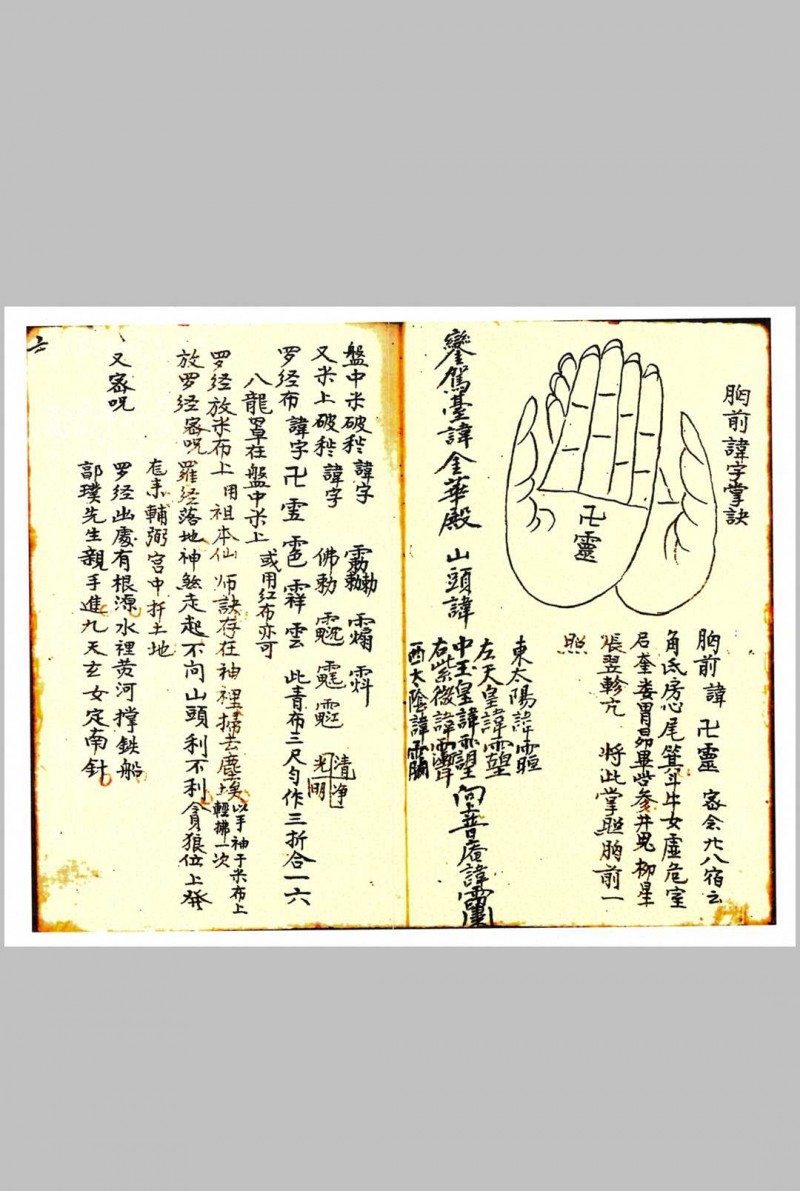 胸前諱字掌訣
卍靈
胸前諱 卍靈 密念廿八宿云
角氐房心尾箕斗牛女虛危室
奎婁胃昴畢参井鬼柳星
張翌軫亢 將此掌照胸前一
照
東太陽諱
左天皇諱
中玉皇諱
右紫微諱
西太陰諱
向普庵諱
鑾駕臺諱金華殿 山頭諱
盤中米破 諱字
清净
又米上破 諱字 佛勅
光明
罗经布 諱字 卍 雲 此青布三尺匀作三折合一六
八龍罩在盤中米上 或用红布亦可
罗经放米布上 用祖本仙师訣存在神裡掃去塵埃 以手袖于米布上輕拂一次
放罗经密咒 羅经落地神煞走起不向山頭利不利貪狼位上發
輔弼宫中折土地
又密咒 罗经出處有根源水裡黄河撑鉄船
郭璞先生親手進九天玄女定南針